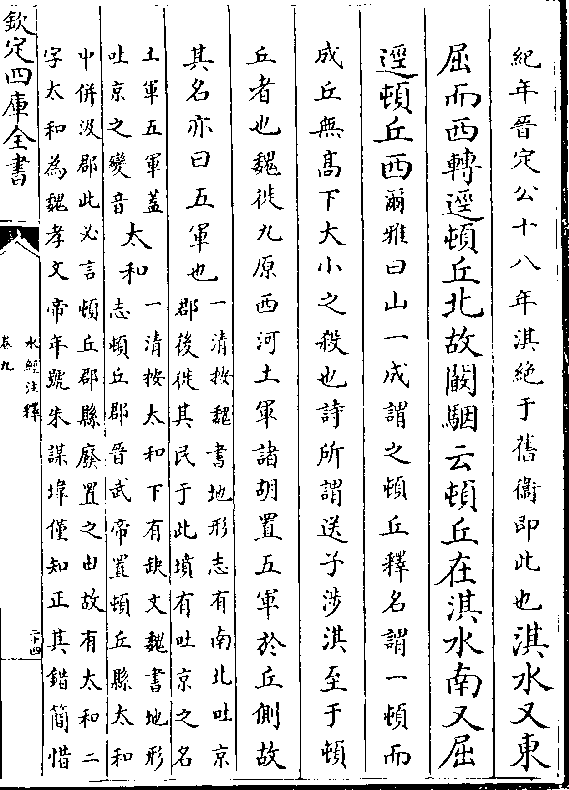 紀年晉定公十八年淇絶于舊衞即此也淇水又東
屈而西轉逕頓丘北故闞駰云頓丘在淇水南又屈
逕頓丘西爾雅曰山一成謂之頓丘釋名謂一頓而
成丘無髙下大小之殺也詩所謂送子涉淇至于頓
丘者也魏徙九原西河土軍諸胡置五軍於丘側故
其名亦曰五軍也
一清按魏書地形志有南北吐京
郡後徙其民于此墳有吐京之名
土軍五軍蓋
吐京之變音
太和
一清按太和下有缺文魏書地形
志頓丘郡晉武帝置頓丘縣太和
中併汲郡此必言頓丘郡縣廢置之由故有太和二
字太和為魏孝文帝年號朱謀㙔僅知正其錯簡惜
欽定四庫全書
水經注釋
卷九
二十四